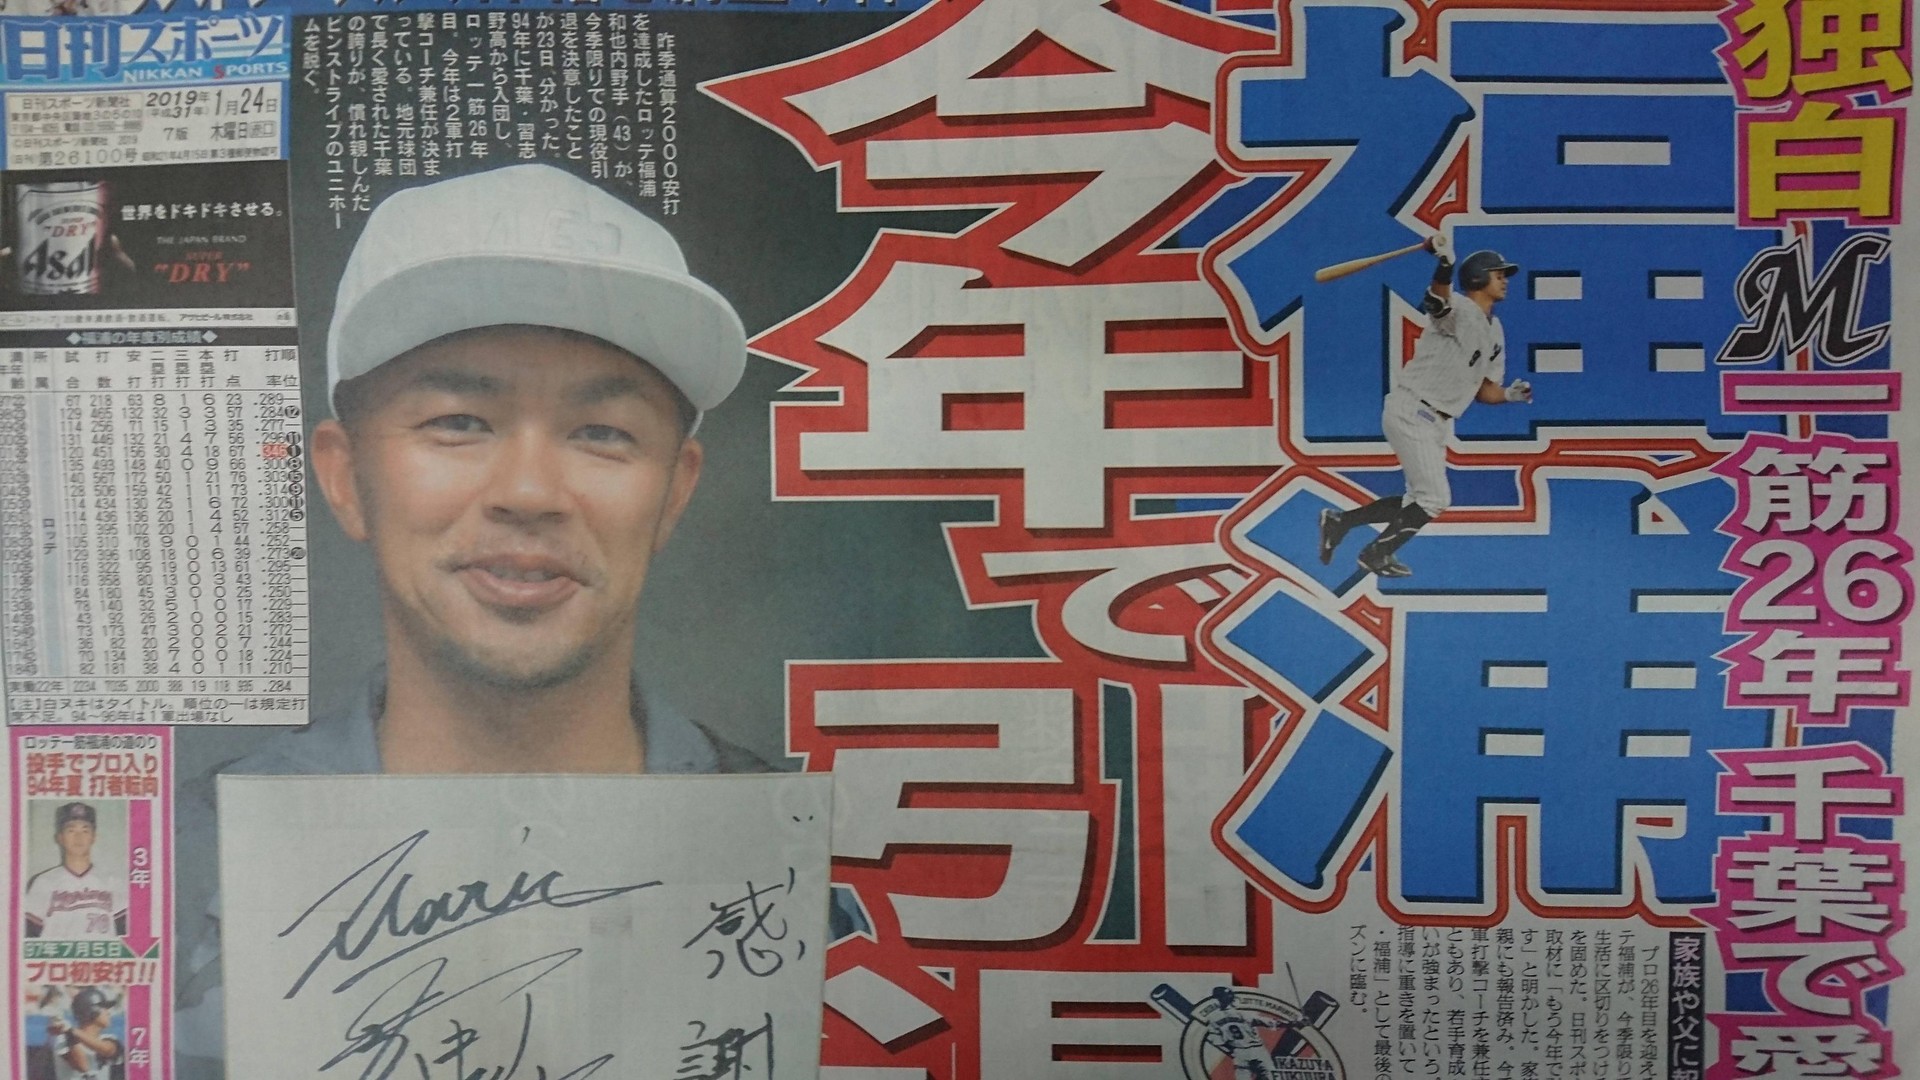 独白
M一筋26年 千葉で愛
福浦
今年で引退
日刊スポーツ
NIKKAN SPORTS
日刊スポーツ新聞社
2019年
(平成31年)
1月24日
7版
木曜日
©日刊スポーツ新聞社 2019
第26100号
昭和21年4月15日第3種郵便物認可
昨季通算2000安打
を達成したロッテ福浦
和也内野手(43)が、
今季限りでの現役引
退を決意したこと
が23日、分かった。
94年に千葉・習志
野高から入団し、
ロッテ一筋26年
目。今年は2軍打
撃コーチ兼任が決ま
っている。地元球団
で長く愛された千葉
の誇りが、慣れ親しんだ
ピンストライプのユニホー
ムを脱ぐ。
SUPER "DRY"
Asahi
世界をドキドキさせる。
THE JAPAN BRAND
SUPER
"DRY"
アサヒビール株式会社
◆福浦の年度別成績◆
満年齢 所属 試合 打数 安打 二塁打 三塁打 本塁打 打点 打率 順位
ロッテ
67 218 63 8 1 6 23 .289―
129 465 132 32 3 3 57 .284⑫
114 256 71 15 1 3 35 .277―
131 446 132 21 4 7 56 .296⑪
120 451 156 30 4 18 67 .346①
135 493 148 40 0 9 66 .300⑧
140 567 172 50 1 21 76 .303⑮
128 506 159 42 1 11 73 .314⑨
114 434 130 25 1 6 72 .300⑪
114 436 136 20 1 4 52 .312⑤
110 395 102 20 1 4 57 .258―
105 310 78 9 0 1 44 .252―
129 396 108 18 0 6 39 .273⑳
116 322 95 19 0 13 61 .295―
116 358 80 13 0 3 43 .223―
84 180 45 3 0 0 25 .250―
78 140 32 5 1 0 17 .229―
43 92 26 2 0 0 15 .283―
73 173 47 3 0 2 21 .272―
36 82 20 2 0 0 7 .244―
70 134 30 7 0 0 18 .224―
82 181 38 4 0 1 11 .210―
実働22年 2234 7035 2000 388 19 118 935 .284
【注】白ヌキはタイトル。順位の―は規定打
席不足。94〜96年は1軍出場なし
ロッテ一筋福浦の道のり
投手でプロ入り
94年夏 打者転向
3年
97年7月5日
プロ初安打!!
7年
感謝
家族や父に
プロ26年目を迎え
テ福浦が、今季限り
生活に区切りをつけ
を固めた。日刊スポ
取材に「もう今年で
す」と明かした。家
親にも報告済み。今
軍打撃コーチを兼任
ともあり、若手育成
いが強まったという。
指導に重きを置いて
・福浦」として最後の
ズンに臨む。
LOTTE MARINES
KAZUYA
FUKUURA